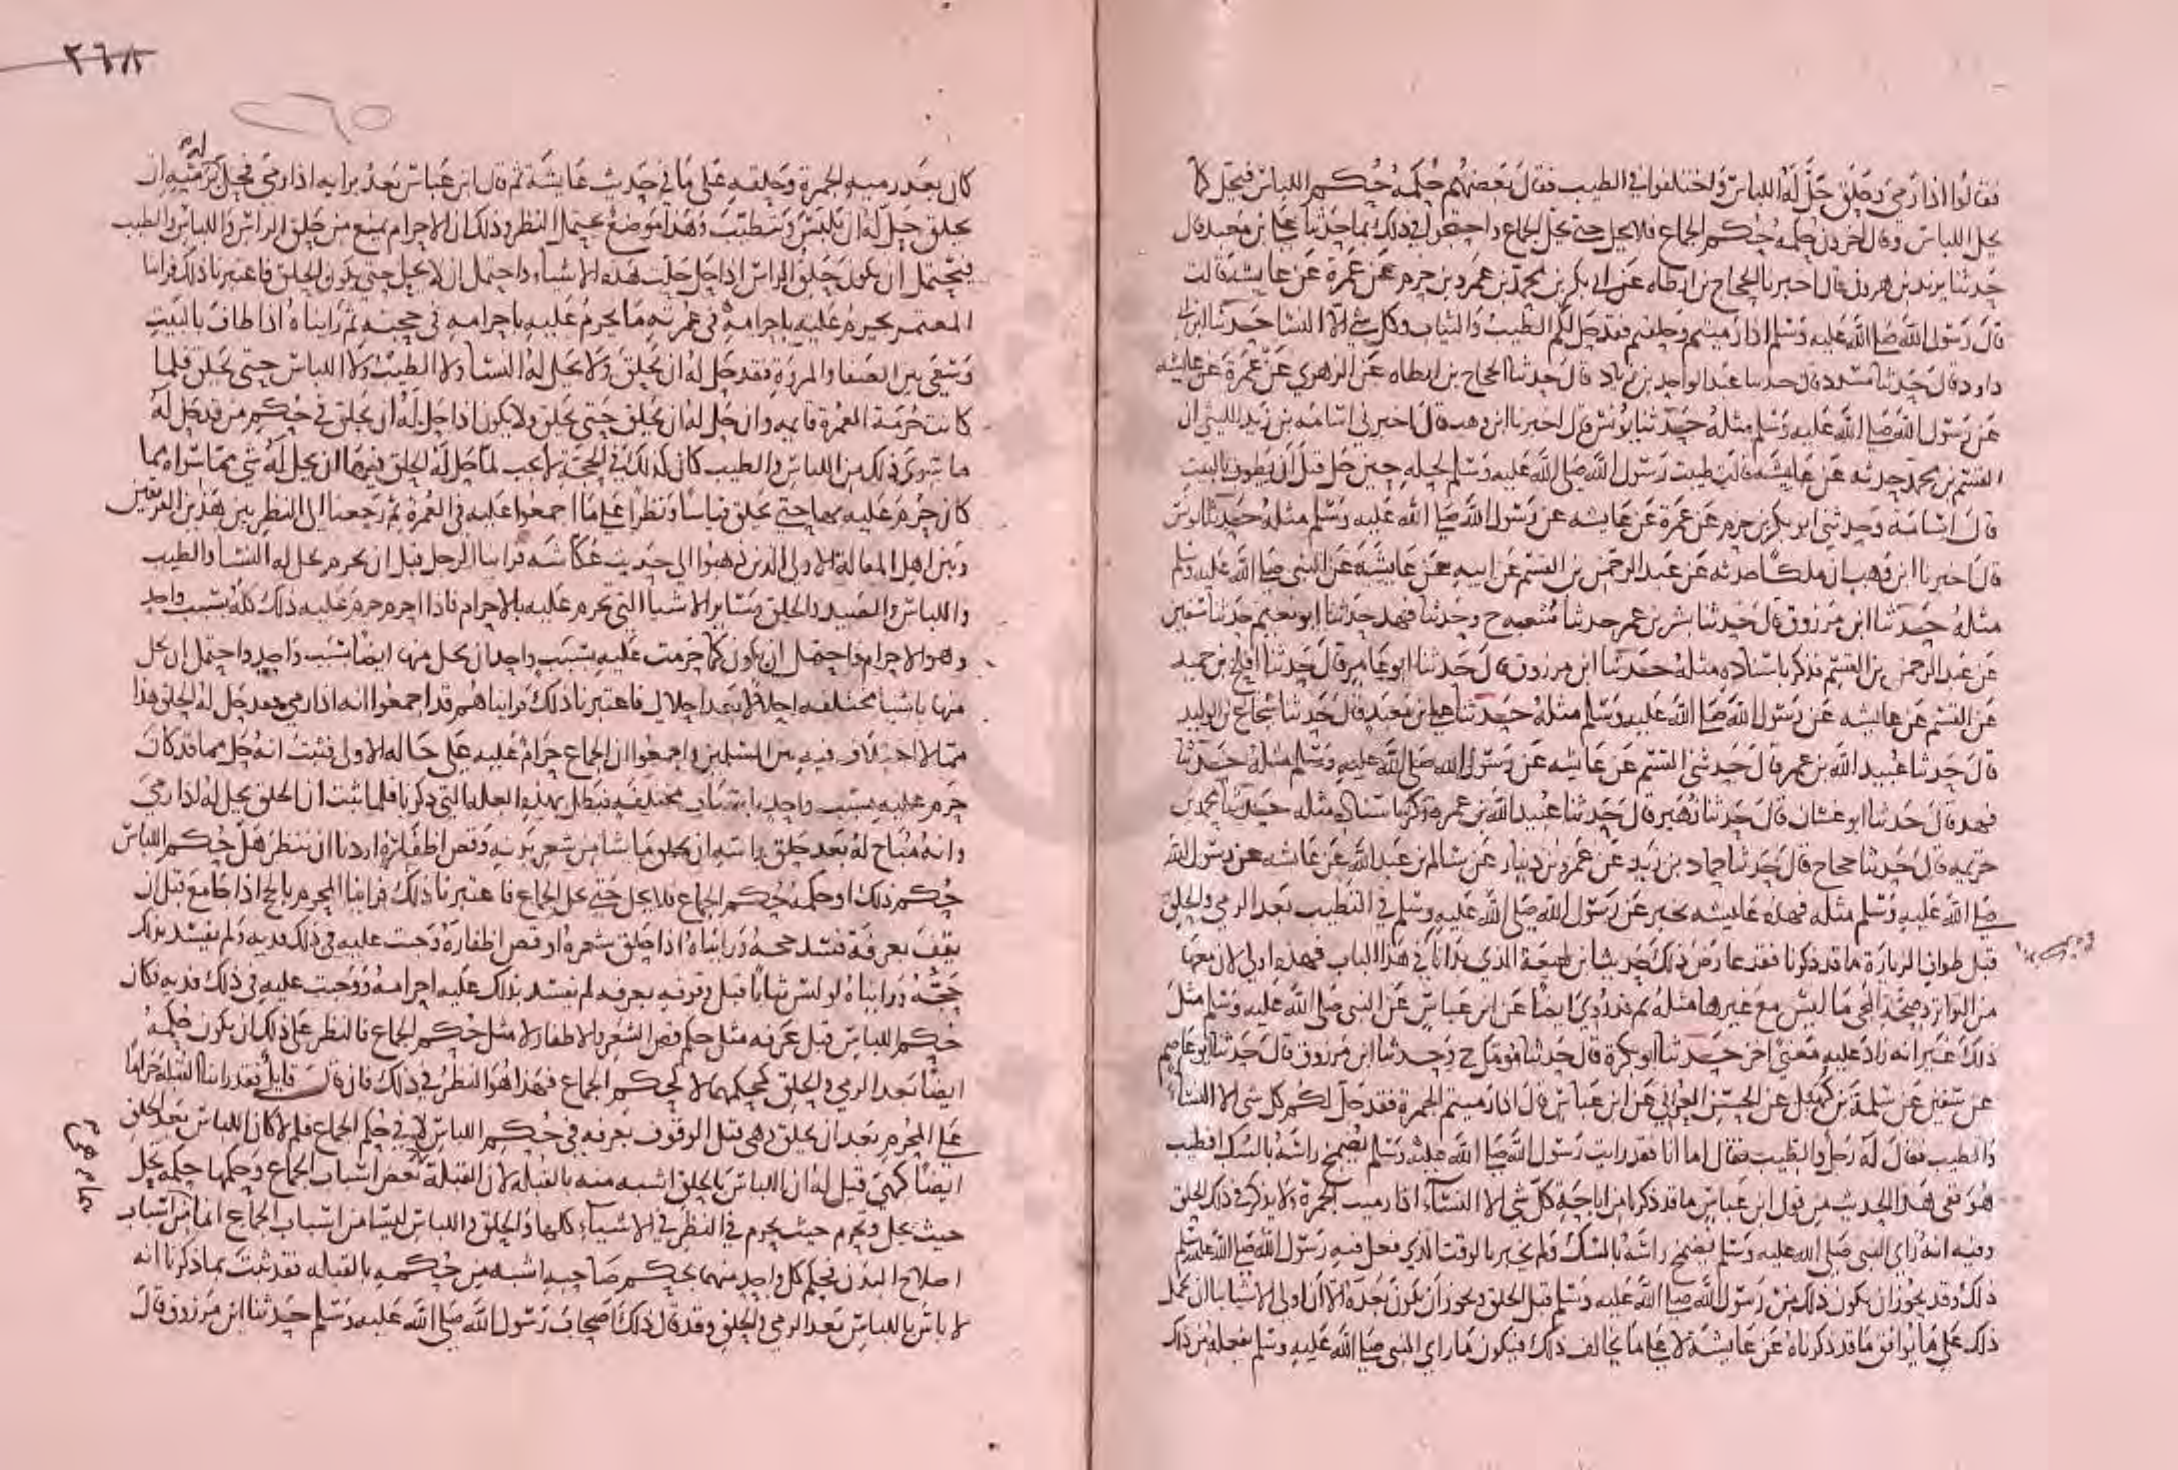 فقالوا اذا رمي وحلق حل له اللباس واختلفوا في الطيب فقال بعضهم حكمه حكم اللباس فيحل كما
يحل اللباس وقال اخرون حكمه حكم الجماع فلا يحل حتى يحل الجماع واحتجوا في ذلك بما حدثنا علي بن معبد قال
حدثنا يزيد بن هرون قال اخبرنا الحجاج بن ارطاه عن ابي بكر بن محمد بن عمرو بن حزم عن عمرة عن عايشة قالت
قال رسول الله صلى الله عليه وسلم اذا رميتم وحلقتم فقد حل لكم الطيب والثياب وكل شي الا النسا حدثنا ابن ابي
داود قال حدثنا مسدد قال حدثنا عبد الواحد بن زياد قال حدثنا الحجاج بن ارطاه عن الزهري عن عمرة عن عايشه
عن رسول الله صلى الله عليه وسلم مثله حدثنا يونس قال اخبرنا ابن وهب قال اخبرني اسامه بن زيد الليثي ان
القسم بن محمد حدثه عن عايشه قالت طيبت رسول الله صلى الله عليه وسلم لحله حين حل قبل ان يطوف بالبيت
قال اسامة وحدثني ابو بكر بن حزم عن عمرة عن عايشه عن رسول الله صلى الله عليه وسلم مثله حدثنا يونس
قال اخبرنا ابن وهب ان ملكا حدثه عن عبد الرحمن بن القسم عن ابيه عن عايشة عن النبي صلى الله عليه وسلم
مثله حدثنا ابن مرزوق قال حدثنا بشر بن عمر حدثنا شعبه ح وحدثنا فهد حدثنا ابو نعيم حدثنا سفين
عن عبد الرحمن بن القسم فذكر باسناده مثله حدثنا ابن مرزوق قال حدثنا ابو عامر قال حدثنا افلح بن حميد
عن القسم عن عايشه عن رسول الله صلى الله عليه وسلم مثله حدثنا علي بن معبد قال حدثنا شجاع بن الوليد
قال حدثنا عبيد الله بن عمر قال حدثني القسم عن عايشه عن رسول الله صلى الله عليه وسلم مثله حدثنا
فهد قال حدثنا ابو غسان قال حدثنا زهير قال حدثنا عبيد الله بن عمر فذكر باسناده مثله حدثنا محمد بن
خزيمه قال حدثنا حجاج قال حدثنا حماد بن زيد عن عمرو بن دينار عن سالم بن عبد الله عن عايشه عن رسول الله
صلى الله عليه وسلم مثله فهذه عايشه تخبر عن رسول الله صلى الله عليه وسلم في التطيب بعد الرمي والحلق
قبل طواف الزيارة ما قد ذكرنا فقد عارض ذلك حديث ابن لهيعة الذي بدانا في هذا الباب فهذه اولى لان معها
من التواتر وصحة المجي ما ليس مع غيرها مثله ثم قد روي ايضا عن ابن عباس عن النبي صلى الله عليه وسلم مثل
ذلك غير انه زاد عليه معنى اخر حدثنا ابو بكرة قال حدثنا مؤمل ح وحدثنا ابن مرزوق قال حدثنا ابو عاصم
عن سفين عن سلمة بن كهيل عن الحسن العرني عن ابن عباس قال اذا رميتم الجمرة فقد حل لكم كل شي الا النساء
فقال له رجل والطيب فقال اما انا فقد رايت رسول الله صلى الله عليه وسلم يضمخ راسه بالسك افطيب
هو ففي هذا الحديث من قول ابن عباس ما قد ذكرنا من اباحة كل شي الا النساء اذا رميت الجمرة ولا يذكر في ذلك الحلق
وفيه انه راي النبي صلى الله عليه وسلم يضمخ راسه بالسك ولم يخبر بالوقت الذي فعل فيه رسول الله صلى الله عليه وسلم
ذلك وقد يجوز ان يكون ذلك من رسول الله صلى الله عليه وسلم قبل الحلق ويجوز ان يكون بعده الا ان اولى الاشيا بنا ان نحمل
ذلك على ما يوافق ما قد ذكرناه عن عايشة لا على ما يخالف ذلك فيكون ما راي النبي صلى الله عليه وسلم فعله من ذلك
٢٦٨
كان بعد رميه الجمرة وحلقه على ما في حديث عايشة ثم قال ابن عباس بعد برايه اذا رمى فحل له برميه ان
يحلق حل له ان يلبس ويتطيب وهذا موضع يحتمل النظر وذلك ان الاحرام يمنع من حلق الراس واللباس والطيب
فيحتمل ان يكون حلق الراس اذا حل حلت هذه الاشياء واحتمل ان لا يحل حتى يكون الحلق فاعتبرنا ذلك فراينا
المعتمر يحرم عليه باحرامه في عمرته ما يحرم عليه باحرامه في حجته ثم رايناه اذا طاف بالبيت
وسعى بين الصفا والمروة فقد حل له ان يحلق ولا يحل له النسا ولا الطيب ولا اللباس حتى يحلق فلما
كانت حرمة العمرة قايمه وان حل له ان يحلق حتى يحلق ولا يكون اذا حل له ان يحلق في حكم من قد حل له
ما سوى ذلك من اللباس والطيب كان كذلك في الحجة لا يجب لما حل له الحلق فيها ان يحل له شي مما سواه مما
كان حرم عليه بها حتى يحلق قياسا ونظرا على ما اجمعوا عليه في العمرة ثم رجعنا الى النظر بين هذين الفريقين
وبين اهل المقالة الاولى الذين ذهبوا الى حديث عكاشه فراينا الرجل قبل ان يحرم يحل له النسا والطيب
واللباس والصيد والحلق وساير الاشيا التي تحرم عليه بالاحرام فاذا احرم حرم عليه ذلك كله بسبب واحد
وهو الاحرام فاحتمل ان يكون كما حرمت عليه بسبب واحد ان يحل منها ايضا بسبب واحد واحتمل ان يحل
منها باشيا مختلفه احلالا بعد احلال فاعتبرنا ذلك فرايناهم قد اجمعوا انه اذا رمي فقد حل له الحلق هذا
مما لا اختلاف فيه بين المسلمين واجمعوا ان الجماع حرام عليه على حاله الاولى فثبت انه حل مما قد كان
حرم عليه بسبب واحد باسباب مختلفه فبطل بهذا العله التي ذكرنا فلما ثبت ان الحلق يحل له اذا رمي
وانه مباح له بعد حلق راسه ان يحلق ما شا من شعر بدنه وقص اظفاره اردنا ان ننظر هل حكم اللباس
حكم ذلك او حكمه حكم الجماع فلا يحل حتى يحل الجماع فاعتبرنا ذلك فراينا المحرم بالحج اذا جامع قبل ان
يقف بعرفة فسد حجه ورايناه اذا حلق شعره او قص اظفاره وجبت عليه في ذلك فديه ولم يفسد بذلك
حجه ورايناه لو لبس ثيابا قبل وقوفه بعرفه لم يفسد بذلك عليه احرامه ووجبت عليه في ذلك فديه فكان
حكم اللباس قبل عرفه مثل حكم قص الشعر والاظفار لا مثل حكم الجماع فالنظر على ذلك ان يكون حكمه
ايضا بعد الرمي والحلق كحكمهما لا كحكم الجماع فهذا هو النظر في ذلك فان قال قايل فقد راينا القبلة حراما
على المحرم بعد ان يحلق وهي قبل الوقوف بعرفه في حكم اللباس لا في حكم الجماع فلم لا كان اللباس بعد الحلق
ايضا كهي قيل له ان اللباس بالحلق اشبه منه بالقبله لان القبلة بعض اسباب الجماع وحكمها حكمه يحل
حيث يحل وتحرم حيث يحرم في النظر في الاشياء كلها والحلق واللباس ليسا من اسباب الجماع انما من اسباب
اصلاح البدن فحكم كل واحد منهما بحكم صاحبه اشبه من حكمه بالقبله فقد ثبت بما ذكرنا انه
لا باس باللباس بعد الرمي والحلق وقد قال ذلك اصحاب رسول الله صلى الله عليه وسلم حدثنا ابن مرزوق قال